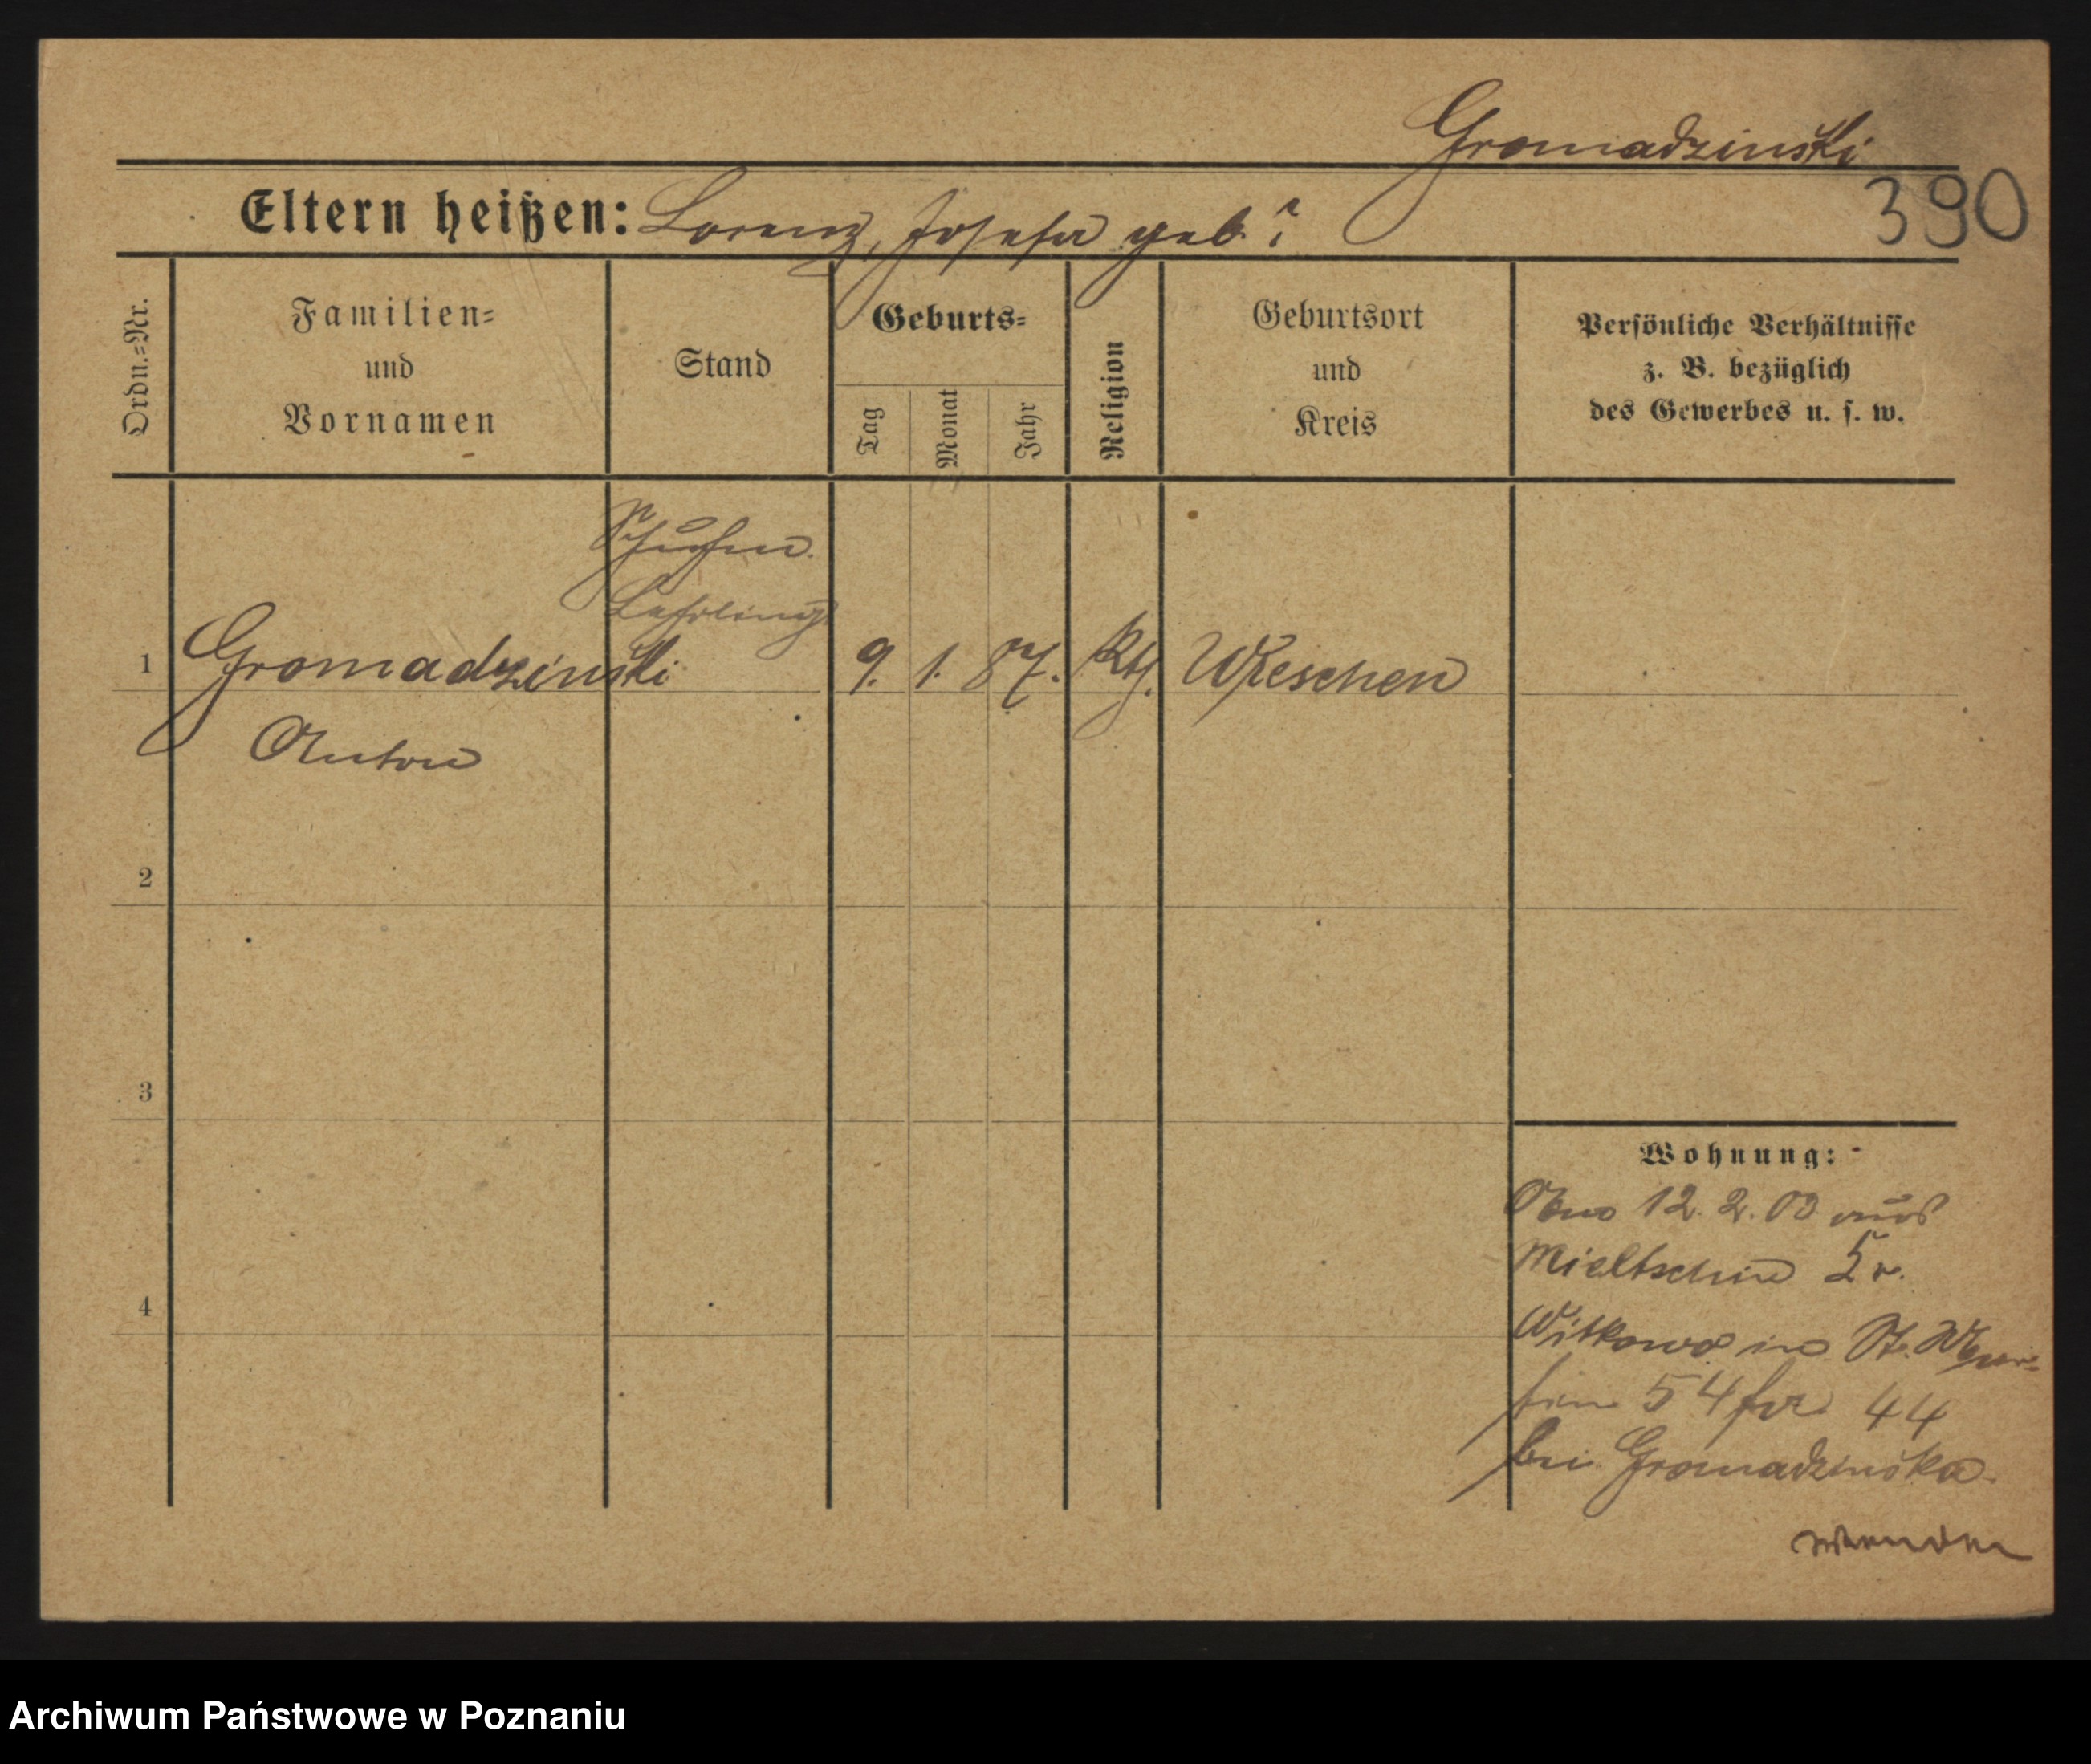 Gromadzinski
390
Eltern heißen: Lorenz, Josefa geb. ?
Ordn.=Nr.
Familien=
und
Vornamen
Stand
Geburts=
Tag
Monat
Jahr
Religion
Geburtsort
und
Kreis
Persönliche Verhältnisse
z. B. bezüglich
des Gewerbes u. s. w.
Schuhm.
Lehrling
1 Gromadzinski 9. 1. 87. kth. Wreschen
Anton
2
3
4
Wohnung:
12. 2. 03 aus
Mieltschin Kr.
Witkowo in St. Mar=
tin 54 44
bei Gromadzinska
wenden
Archiwum Państwowe w Poznaniu